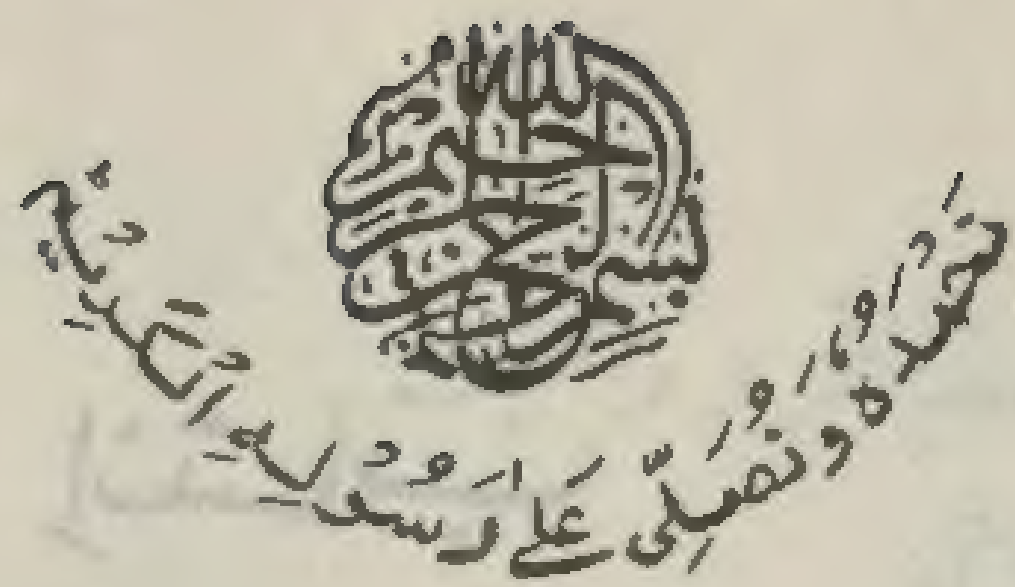 بسم الله الرحمن الرحيم
نَحْمَدُهُ وَنُصَلِّي عَلَىٰ رَسُوْلِهِ الْكَرِيْمِ